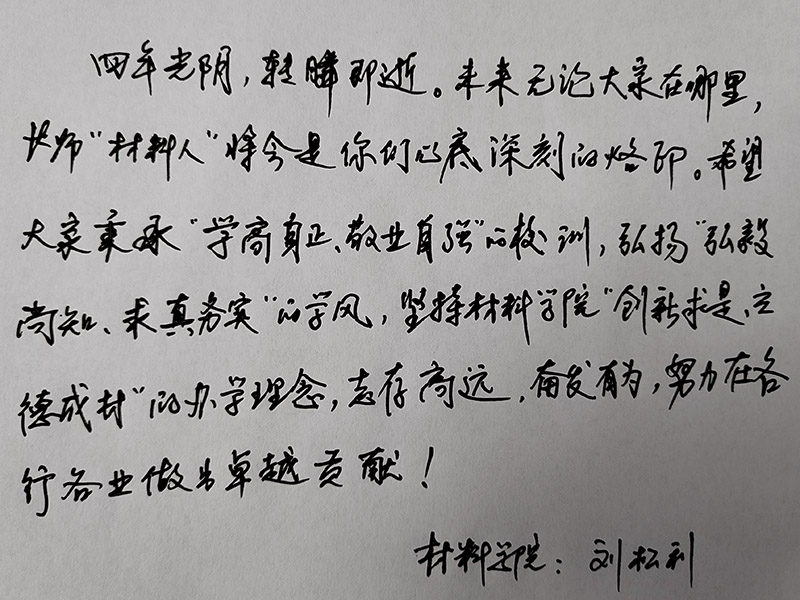 四年光阴，转瞬即逝。未来无论大家在哪里，
长师“材料人”将会是你们心底深刻的烙印。希望
大家秉承“学高身正、敬业自强”的校训，弘扬“弘毅
尚知、求真务实”的学风，坚持材料学院“创新求是、立
德成材”的办学理念，志存高远，奋发有为，努力在各
行各业做出卓越贡献！
材料学院：刘松利